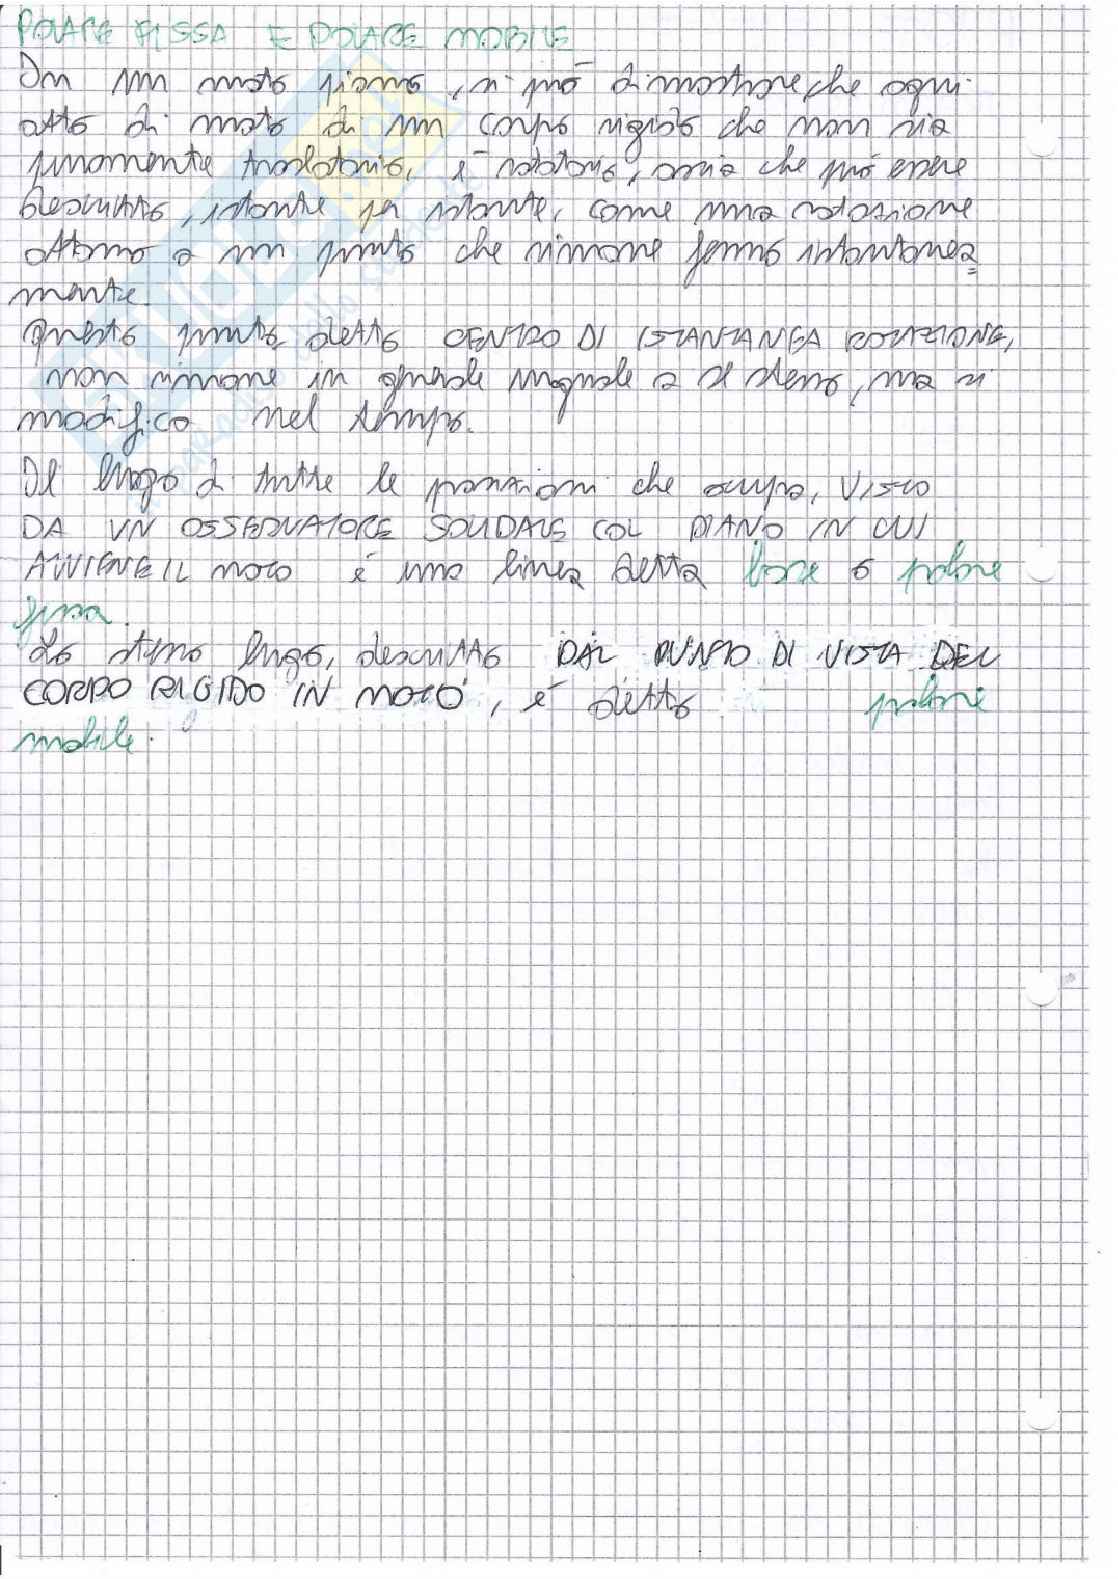 POLARE FISSA E POLARE MOBILE
In un moto piano, si può dimostrare che ogni
atto di moto di un corpo rigido che non sia
puramente traslatorio, è rotatorio, ossia che può essere
descritto, istante per istante, come una rotazione
attorno a un punto che rimane fermo istantanea
mente.
Questo punto, detto CENTRO DI ISTANTANEA ROTAZIONE,
non rimane in generale uguale a se stesso, ma si
modifica nel tempo.
Il luogo di tutte le posizioni che occupa, VISTO
DA UN OSSERVATORE SOLIDALE COL PIANO IN CUI
AVVIENE IL MOTO è una linea detta base o polare
fissa.
Lo stesso luogo, descritto DAL PUNTO DI VISTA DEL
CORPO RIGIDO IN MOTO, è detto polare
mobile.